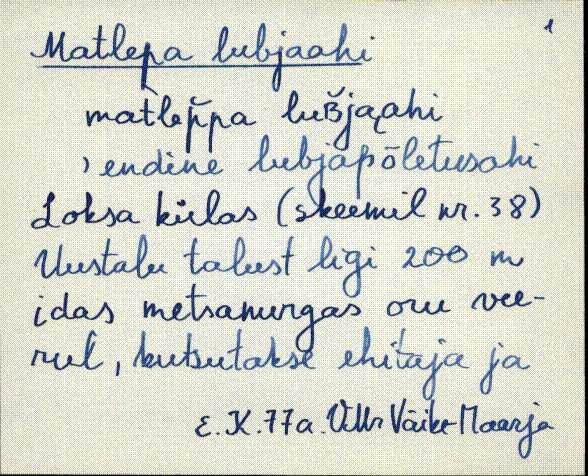 1
Matlepa lubjaahi
matlep̆pa lub̆jaahi
) endine lubjapõletusahi
Loksa külas (skeemil nr. 38)
Uustalu talust ligi 200 m
idas metsanurgas oru vee-
rul, kutsutakse ehitaja ja
E. K. 77a. V.Mr Väike-Maarja